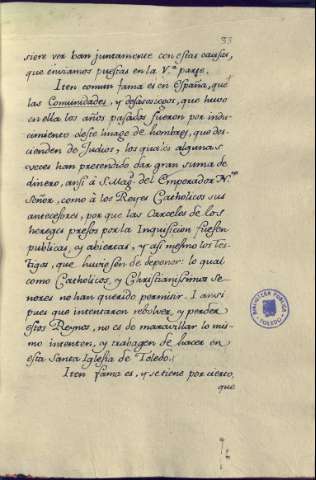 33
siere ver ban juntamente con estas causas,
que enviamos puestas en la V.ª parte.
Iten comun fama es en España, que
las Comunidades, y desasosegos, que huvo
en ella los años pasados fueron por indu-
cimiento desse linage de hombres, que des-
cienden de Judios, los quales algunas
veces han pretendido dar gran suma de
dinero, ansi à S. Mag.d del Emperador N.ro
Señor, como à los Reyes Catholicos sus
antecesores, por que las Carceles de los
hereges presos por la Inquisicion fuesen
publicas, y abiertas, y asi mesmo los tes-
tigos, que huviessen de deponer: lo qual
como Catholicos, y Christianissimos Se-
ñores no han querido permitir. I ansi
pues que intentaron rebolver, y perder
estos Reynos, no es de maravillar lo mis-
mo intenten, y trabagen de hacer en
esta Santa Iglesia de Toledo.
Iten fama es, y se tiene por cierto,
que
BIBLIOTECA PUBLICA
TOLEDO